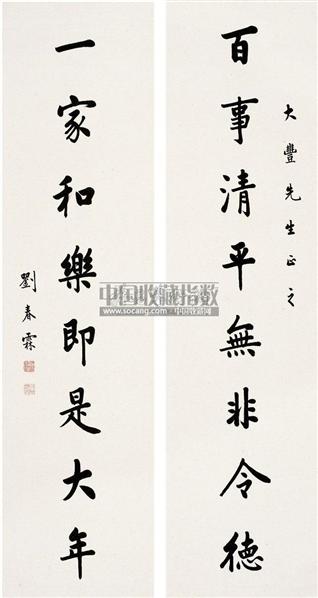 大豐先生正之
百事清平無非令德
一家和樂即是大年
劉春霖
中国收藏指数
www.socang.com 中国收藏网